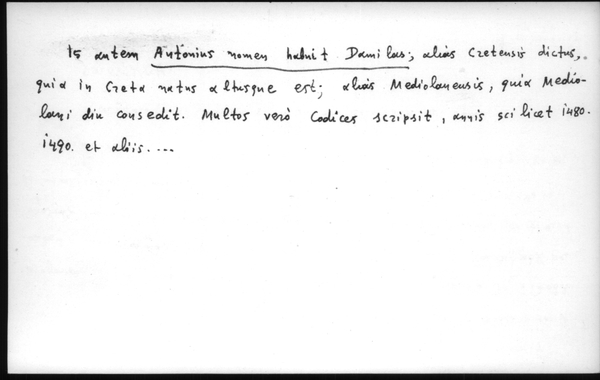 Is autem Antonius nomen habuit Damilas; aliàs Cretensis dictus,
quia in Creta natus altusque est; aliàs Mediolanensis, quia Medio-
lani diu consedit. Multos verò Codices scripsit, annis scilicet 1480.
1490. et aliis....